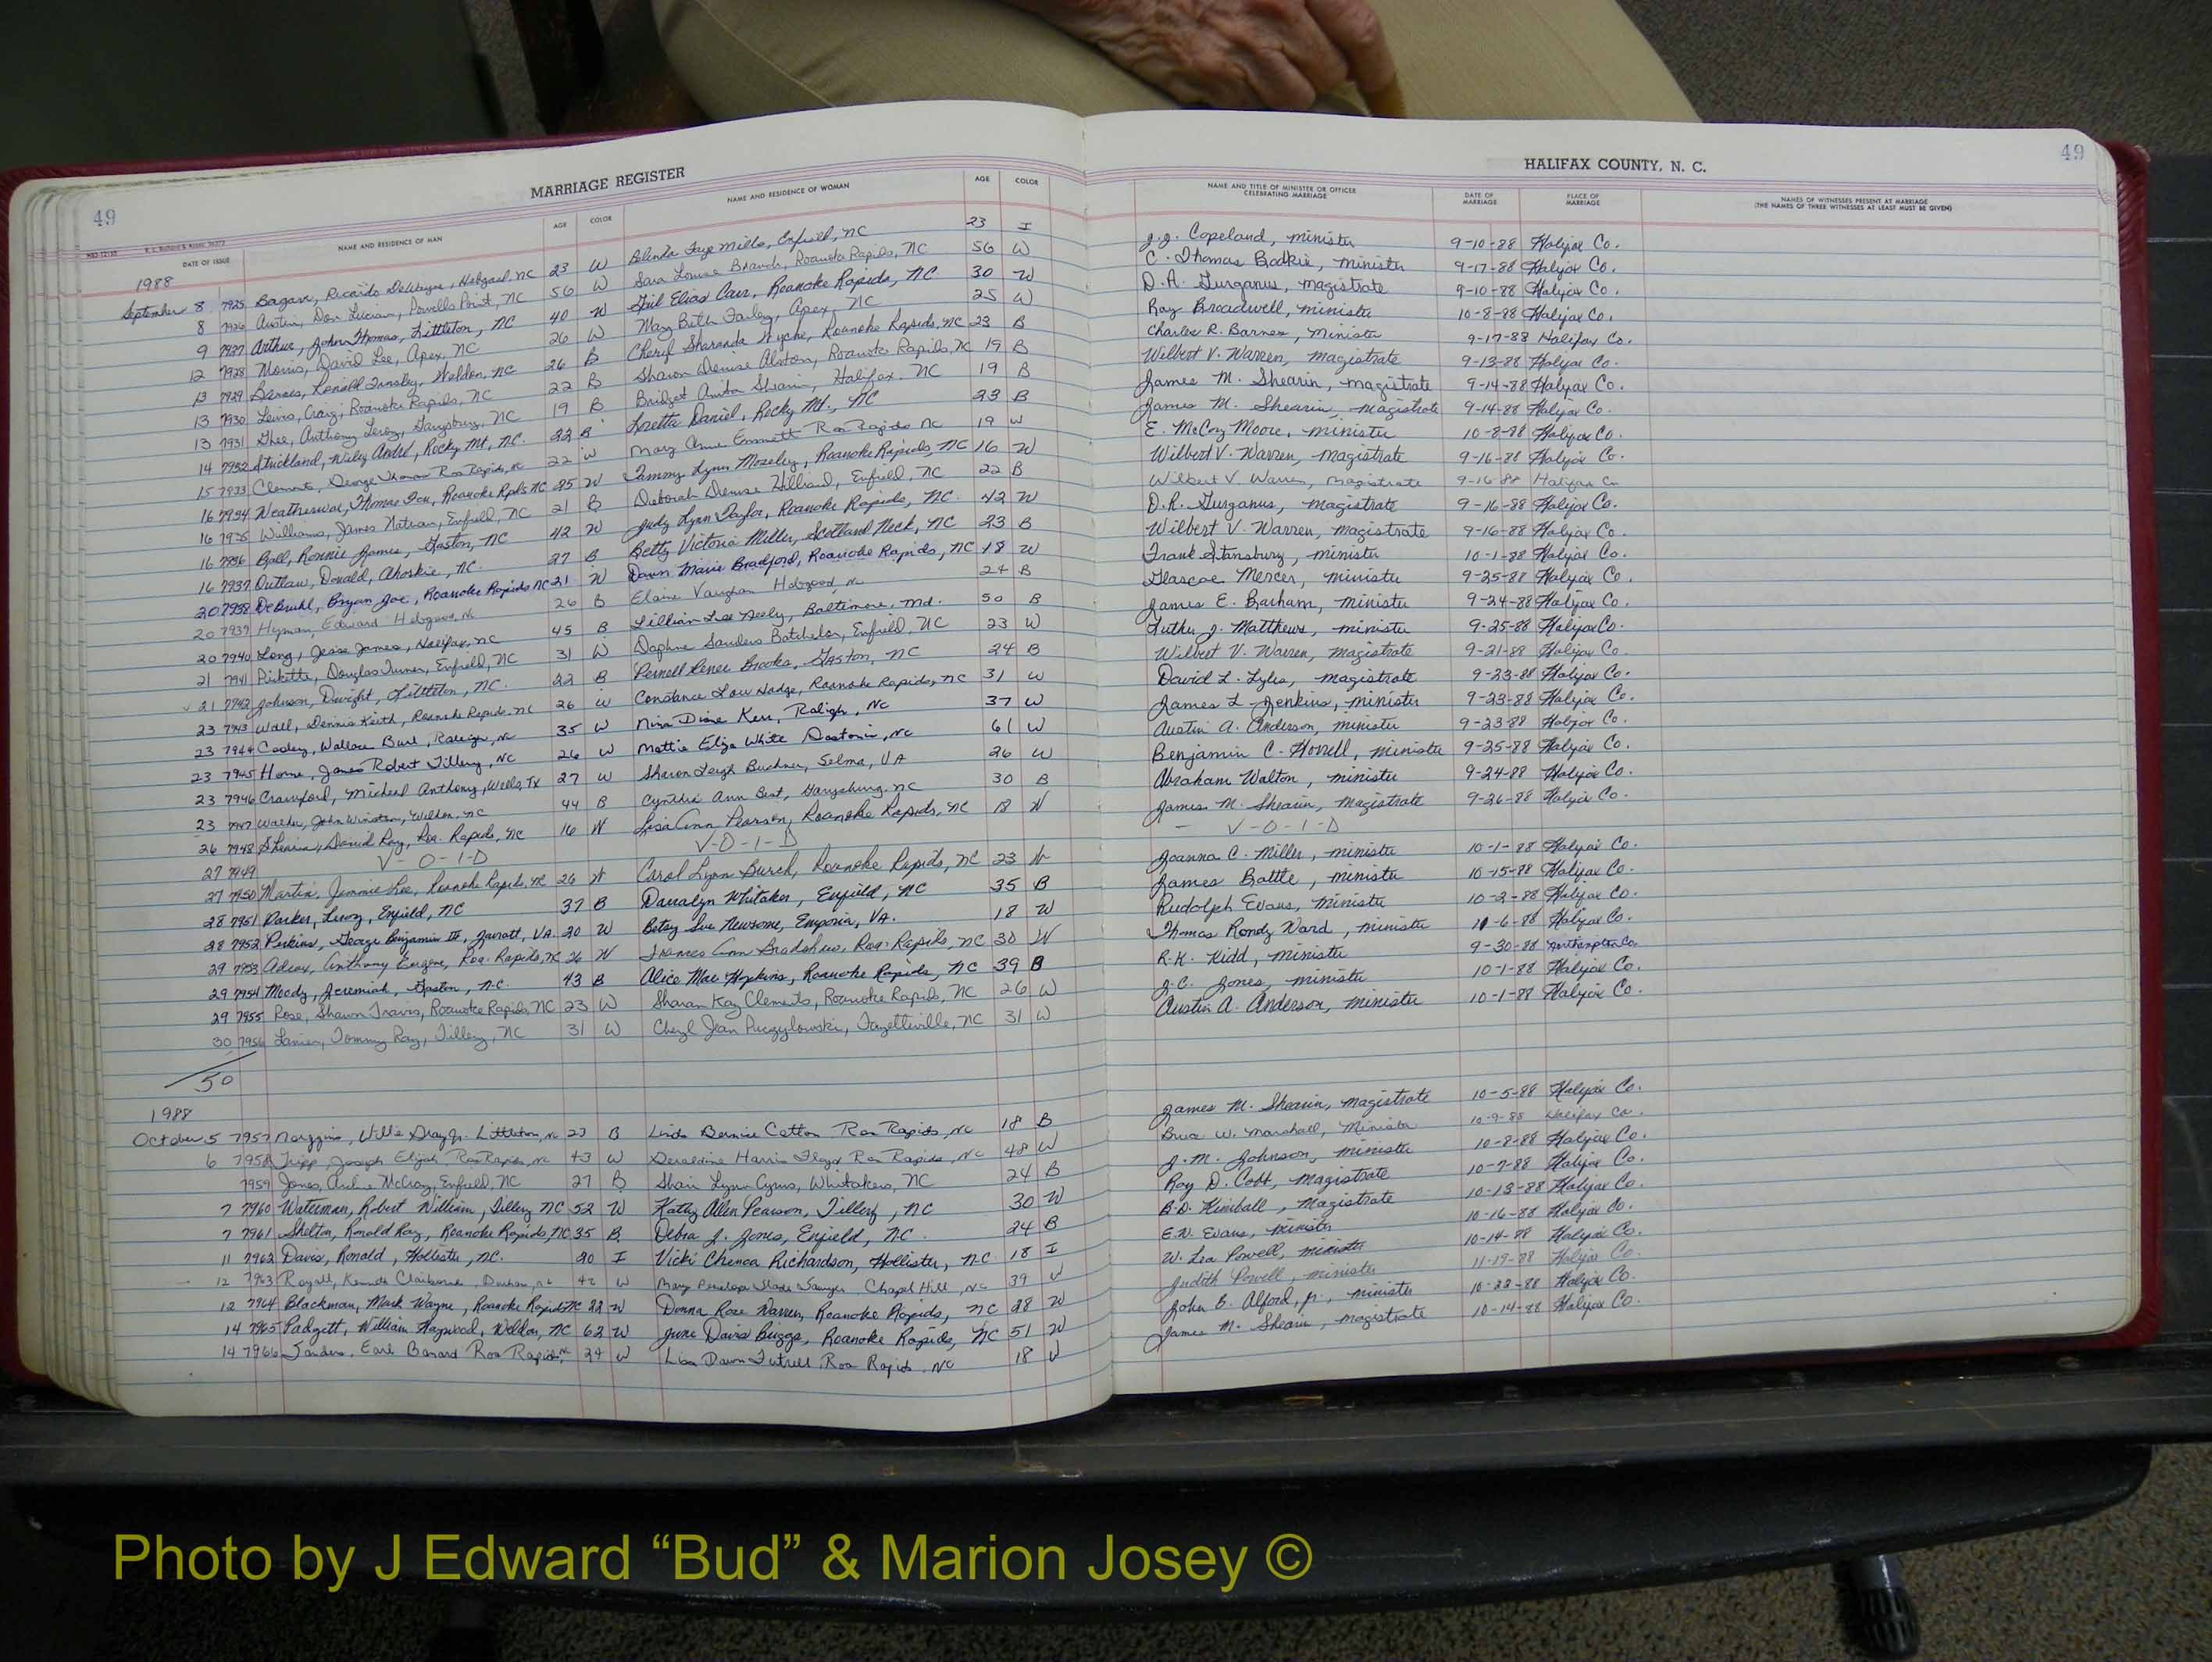 49
MARRIAGE REGISTER
HALIFAX COUNTY, N. C.
49
DATE OF ISSUE NAME AND RESIDENCE OF MAN AGE COLOR NAME AND RESIDENCE OF WOMAN AGE COLOR NAME AND TITLE OF MINISTER OR OFFICER CELEBRATING MARRIAGE DATE OF MARRIAGE PLACE OF MARRIAGE NAMES OF WITNESSES PRESENT AT MARRIAGE (THE NAMES OF THREE WITNESSES AT LEAST MUST BE GIVEN)
1988
September 8 7925 Ricardo Hobgood, NC 23 W Belinda Faye Mills, Enfield, NC 23 I J.J. Copeland, minister 9-10-88 Halifax Co.
8 7926 Austin, Don Lucian, Powells Point, NC 56 W Sara Louise Branch, Roanoke Rapids, NC 56 W C. Thomas minister 9-17-88 Halifax Co.
9 7927 Arthur, John Thomas, Littleton, NC 40 W Elias Carr, Roanoke Rapids, NC 30 W D.R. Gurganus, magistrate 9-10-88 Halifax Co.
12 7928 Morris, David Lee, Apex, NC 26 W Mary Beth Farley, Apex, NC 25 W Ray Broadwell, minister 10-8-88 Halifax Co.
13 7929 Barnes, Weldon, NC 26 B Cheryl Sharanda Wyche, Roanoke Rapids, NC 23 B Charles R. Barnes, minister 9-17-88 Halifax Co.
13 7930 Lewis, Craig, Roanoke Rapids, NC 22 B Sharon Denise Alston, Roanoke Rapids, NC 19 B Wilbert V. Warren, magistrate 9-13-88 Halifax Co.
13 7931 Ghee, Anthony Leroy, Garysburg, NC 19 B Bridget Anita Halifax, NC 19 B James M. Shearin, magistrate 9-14-88 Halifax Co.
14 7932 Strickland, Wiley André, Rocky Mt, NC 22 B Loretta Daniel, Rocky Mt., NC 23 B James M. Shearin, magistrate 9-14-88 Halifax Co.
15 7933 Clements, George Thomas Roa Rapids, NC 22 W Mary Anne Emmett Roa Rapids NC 19 W E. McCoy Moore, minister 10-8-88 Halifax Co.
16 7934 Thomas Roanoke Rpds NC 25 W Tammy Lynn Moseley, Roanoke Rapids, NC 16 W Wilbert V. Warren, magistrate 9-16-88 Halifax Co.
16 7935 Williams, James Nathan, Enfield, NC 21 B Deborah Denise Hilliard, Enfield, NC 22 B Wilbert V. Warren, magistrate 9-16-88 Halifax Co
16 7936 Ball, Ronnie James, Gaston, NC 42 W Judy Lynn Taylor, Roanoke Rapids, NC 42 W D.R. Gurganus, magistrate 9-16-88 Halifax Co.
16 7937 Outlaw, Donald, Ahoskie, NC. 27 B Betty Victoria Miller, Scotland Neck, NC 23 B Wilbert V. Warren, magistrate 9-16-88 Halifax Co.
20 7938 DeBruhl, Bryan Joe, Roanoke Rapids NC 21 W Dawn Marie Bradford, Roanoke Rapids, NC 18 W Frank Stansbury, minister 10-1-88 Halifax Co.
20 7939 Hyman, Edward Hobgood, NC 26 B Elaine Vaughan Hobgood, NC 24 B Glascoe Mercer, minister 9-25-88 Halifax Co.
20 7940 Long, Jesse James, Halifax, NC 45 B Lillian Lee Neely, Baltimore, Md. 50 B James E. Barham, minister 9-24-88 Halifax Co.
21 7941 Pickette, Douglas Turner, Enfield, NC 31 W Daphne Sanders Batchelor, Enfield, NC 23 W Luther J. Matthews, minister 9-25-88 Halifax Co.
✓ 21 7942 Johnson, Dwight, Littleton, NC. 22 B Pernell Renee Brooks, Gaston, NC 24 B Wilbert V. Warren, magistrate 9-21-88 Halifax Co.
23 7943 Wall, Dennis Keith, Roanoke Rapids NC 26 W Constance Low Hodge, Roanoke Rapids, NC 31 W David L. Lyles, magistrate 9-23-88 Halifax Co.
23 7944 Cooley, Wallace Burt, Raleigh, NC 35 W Nina Diane Kerr, Raleigh, NC 37 W James L. Jenkins, minister 9-23-88 Halifax Co.
23 7945 Horne, James Robert Tillery, NC 26 W Mattie Eliza White Gastonia, NC 61 W Austin A. Anderson, minister 9-23-88 Halifax Co.
23 7946 Crawford, Micheal Anthony, Wells, TX 27 W Sharon Leigh Buckner, Selma, VA 26 W Benjamin C. minister 9-25-88 Halifax Co.
23 7947 Walker, John Winston, Weldon, NC 44 B Cynthia Ann Best, Garysburg, NC 30 B Abraham Walton, minister 9-24-88 Halifax Co.
26 7948 Shearin, David Ray, Roa. Rapids, NC 16 W Lisa Ann Pearson, Roanoke Rapids, NC 18 W James M. Shearin, magistrate 9-26-88 Halifax Co.
27 7949 V-O-I-D V-O-I-D V-O-I-D
27 7950 Martin, Jimmie Lee, Roanoke Rapids, NC 26 W Carol Lynn Burch, Roanoke Rapids, NC 23 W Joanna C. Miller, minister 10-1-88 Halifax Co.
28 7951 Parker, Leroy, Enfield, NC 37 B Darralyn Whitaker, Enfield, NC 35 B James Battle, minister 10-15-88 Halifax Co.
28 7952 Perkins, George Benjamin III, Jarratt, VA. 20 W Betsy Sue Newsome, Emporia, VA. 18 W Rudolph Evans, minister 10-2-88 Halifax Co.
29 7953 Adcox, Anthony Eugene, Roa. Rapids, NC 26 W Frances Ann Bradshaw, Roa. Rapids, NC 30 W Thomas Rondy Ward, minister 10-6-88 Halifax Co.
29 7954 Moody, Jeremiah, Gaston, N.C. 43 B Alice Mae Hopkins, Roanoke Rapids, NC 39 B R.K. Kidd, minister 9-30-88 Northampton Co.
29 7955 Rose, Shawn Travis, Roanoke Rapids, NC 23 W Sharan Kay Clements, Roanoke Rapids, NC 26 W J.C. Jones, minister 10-1-88 Halifax Co.
30 7956 Lanier, Tommy Ray, Tillery, NC 31 W Cheryl Jean Puczylowski, Fayetteville, NC 31 W Austin A. Anderson, minister 10-1-88 Halifax Co.
50
1988
October 5 7957 Willie Gray Jr. Littleton, NC 23 B Linda Bernice Cotton Roa Rapids, NC 18 B James M. Shearin, magistrate 10-5-88 Halifax Co.
6 7958 Tripp, Joseph Elijah, Roa Rapids, NC 43 W Geraldine Harris Floyd Roa Rapids, NC 48 W Bruce W. Marshall, Minister 10-9-88 Halifax Co.
7959 Jones, Archie McCray, Enfield, NC 27 B Shari Lynn Cyrus, Whitakers, NC 24 B J.M. Johnson, minister 10-8-88 Halifax Co.
7 7960 Waterman, Robert William, Tillery NC 52 W Kathy Allen Pearson, Tillery, NC 30 W Roy D. Cobb, magistrate 10-7-88 Halifax Co.
7 7961 Shelton, Ronald Ray, Roanoke Rapids, NC 35 B. Debra J. Jones, Enfield, N.C. 24 B B.D. Kimball, Magistrate 10-13-88 Halifax Co.
11 7962 Davis, Ronald, Hollister, NC. 20 I Vicki Chenoa Richardson, Hollister, N.C. 18 I E.W. Evans, minister 10-16-88 Halifax Co.
12 7963 Royall, Kenneth Claiborne Durham, NC 42 W Mary Penelope Slade Sawyer Chapel Hill, NC 39 W W. Lea Powell, minister 10-14-88 Halifax Co.
12 7964 Blackman, Mark Wayne, Roanoke Rapids NC 22 W Donna Rose Warren, Roanoke Rapids, NC 28 W Judith Powell, minister 11-19-88 Halifax Co.
14 7965 Padgett, William Haywood, Weldon, NC 62 W June Davis Briggs, Roanoke Rapids, NC 51 W John E. Alford, Jr., minister 10-22-88 Halifax Co.
14 7966 Sanders, Earl Roa Rapids, NC 24 W Lisa Dawn Futrell Roa Rapids, NC 18 W James M. Shearin, magistrate 10-14-88 Halifax Co.
Photo by J Edward “Bud” & Marion Josey ©